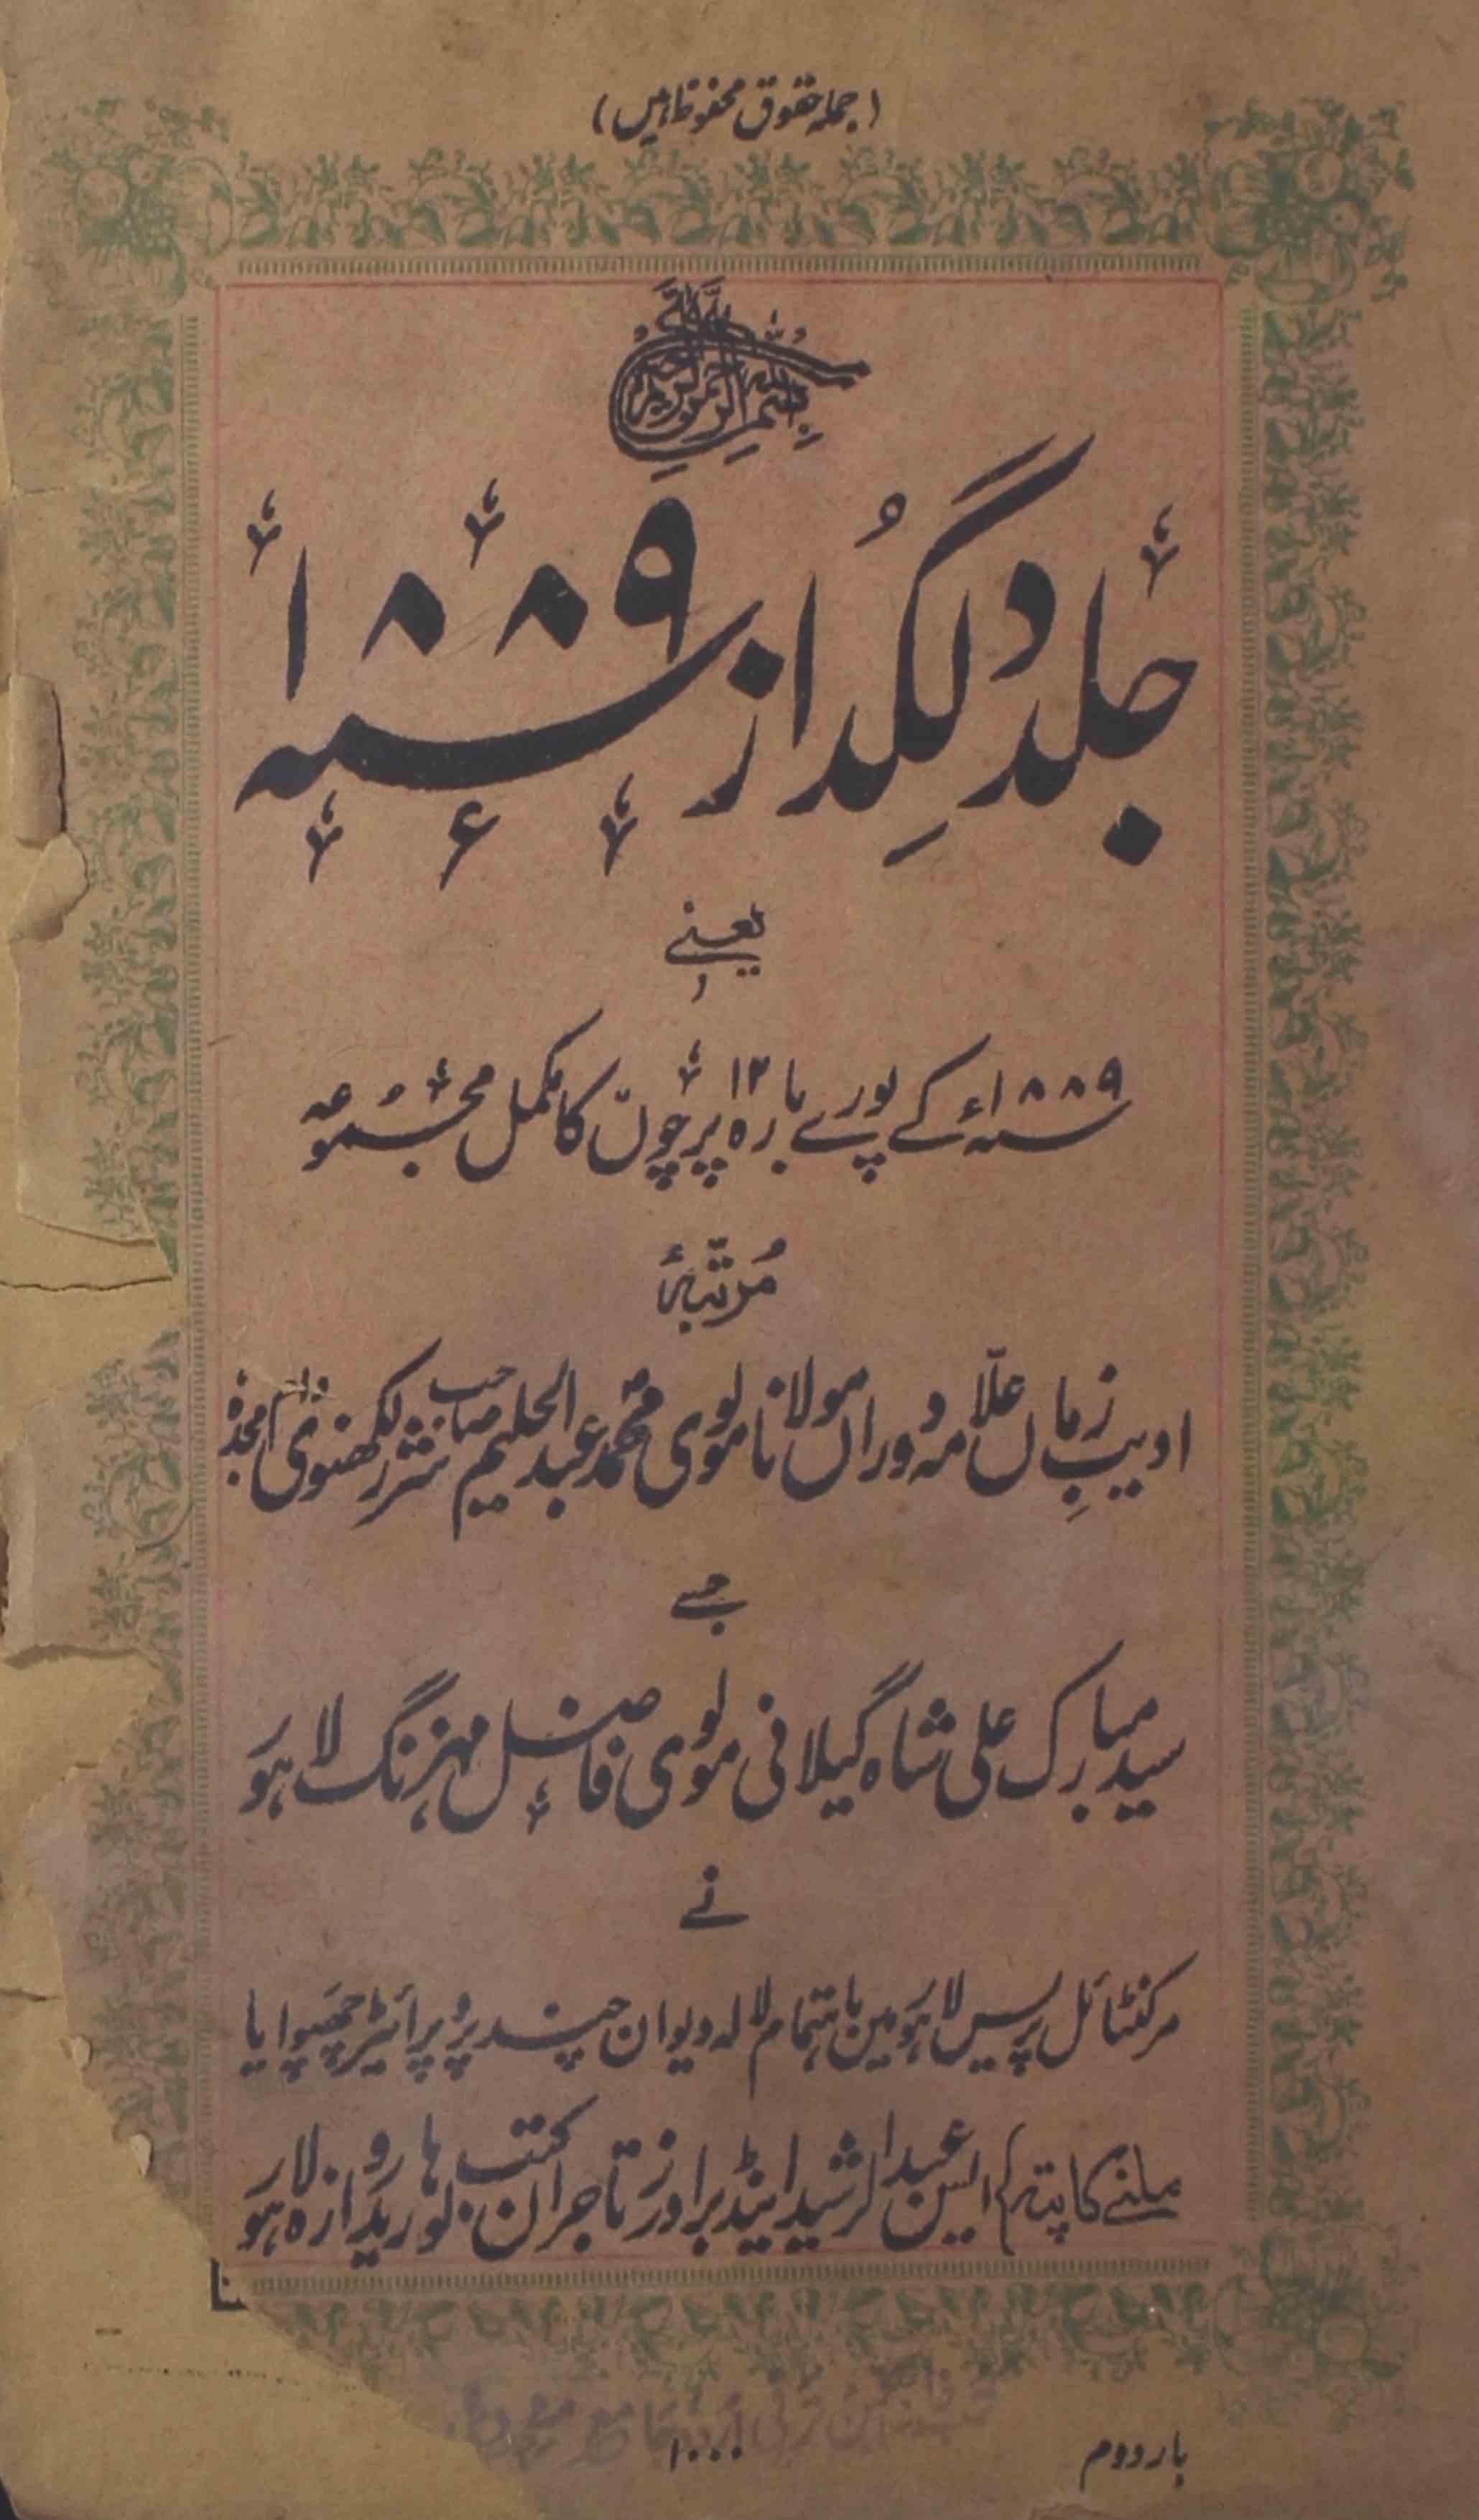 (جملہ حقوق محفوظ ہیں)
بسم اللہ الرحمن الرحیم
جلد دلگداز سنہ ۱۸۸۹ء
یعنے
سنہ ۱۸۸۹ء کے پورے بارہ ۱۲ پرچوں کا مکمل مجموعہ
مُرتّبہٗ
ادیبِ زماں علّامہ دوراں مولانا مولوی محمد عبدالحلیم صاحب شرر لکھنوی دام مجدہٗ
جسے
سید مبارک علی شاہ گیلانی مولوی فاضل مہزنگ لاہور
نے
مرکنٹائل پریس لاہور مین باہتمام لالہ دیوان چند پروپرائیٹر چھپوایا
ملنے کا پتہ ایس عبدالرشید اینڈ برادرز تاجران کتب لوہاریدروازہ لاہور
۱۰۰۰
بار دوم